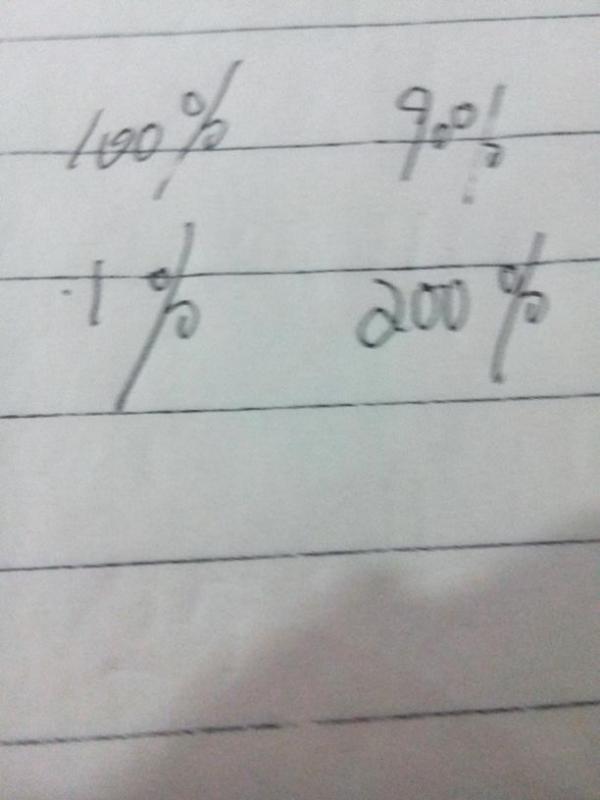 100% 90%
.1% 200%